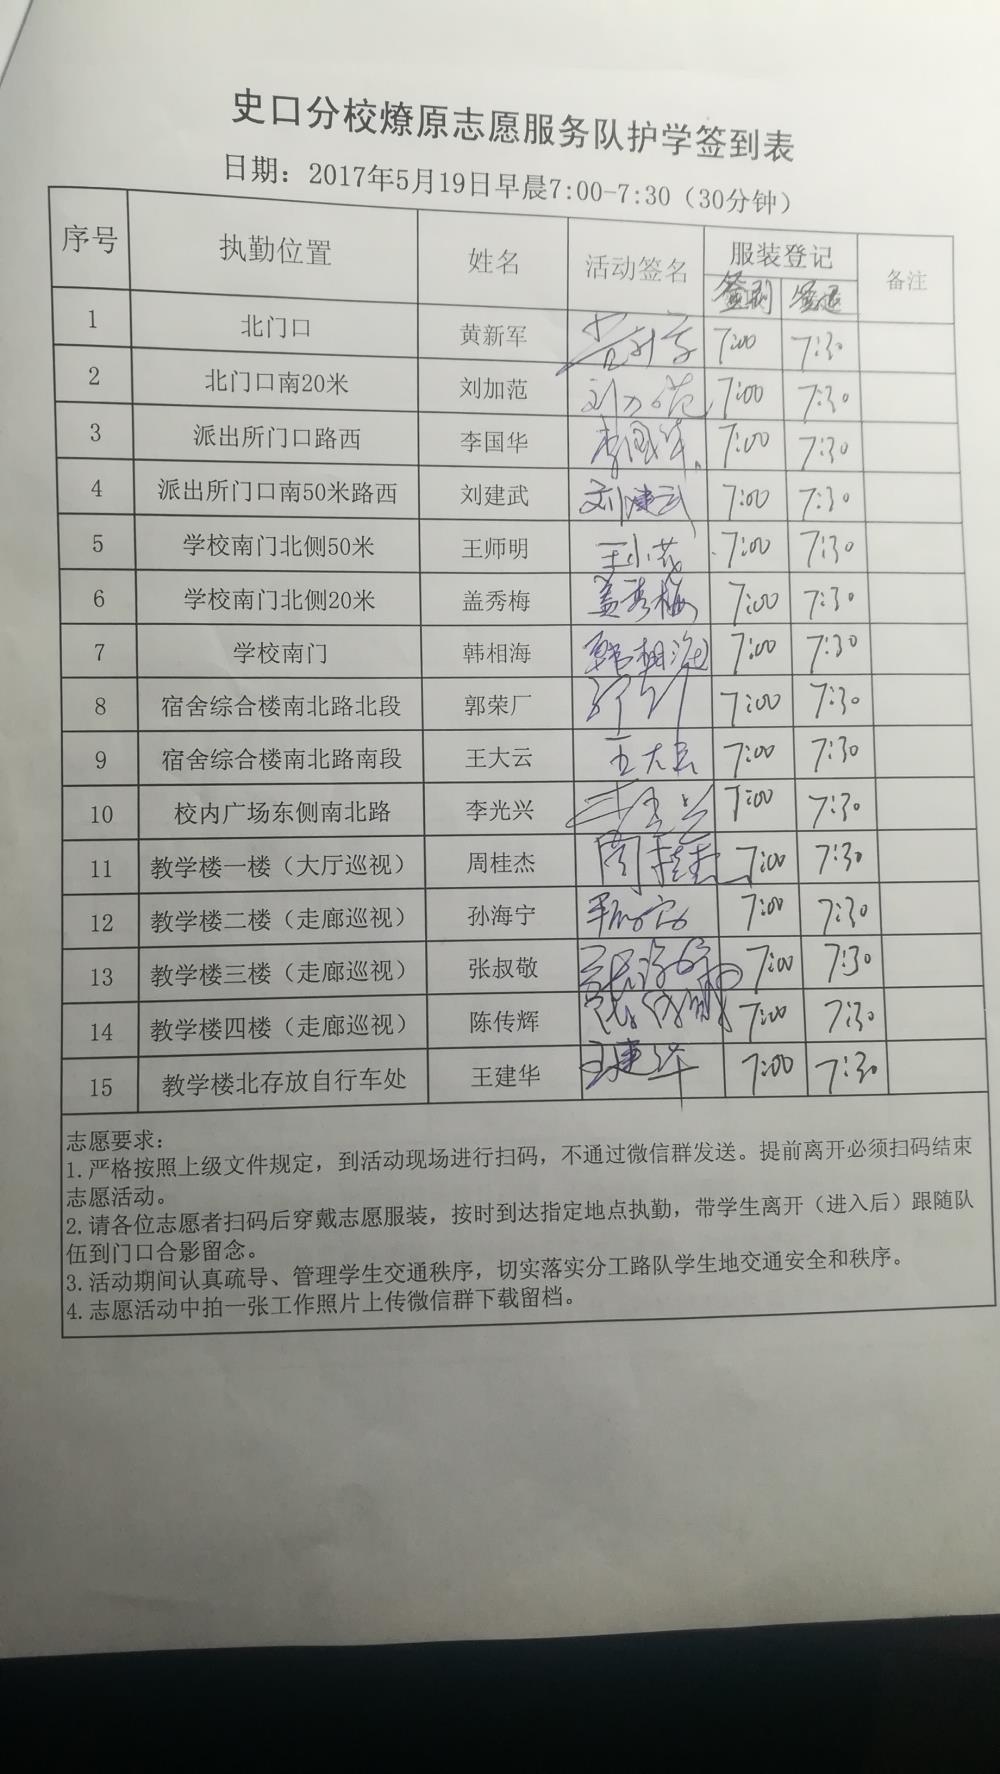 史口分校燎原志愿服务队护学签到表
日期：2017年5月19日早晨7:00-7:30（30分钟）
序号 执勤位置 姓名 活动签名 服装登记 备注
签到 签退
1 北门口 黄新军 7:00 7:30
2 北门口南20米 刘加范 刘加范 7:00 7:30
3 派出所门口路西 李国华 李国华 7:00 7:30
4 派出所门口南50米路西 刘建武 刘建武 7:00 7:30
5 学校南门北侧50米 王师明 王小花 7:00 7:30
6 学校南门北侧20米 盖秀梅 盖秀梅 7:00 7:30
7 学校南门 韩相海 韩相海 7:00 7:30
8 宿舍综合楼南北路北段 郭荣厂 7:00 7:30
9 宿舍综合楼南北路南段 王大云 王大云 7:00 7:30
10 校内广场东侧南北路 李光兴 李光兴 7:00 7:30
11 教学楼一楼（大厅巡视） 周桂杰 周桂杰 7:00 7:30
12 教学楼二楼（走廊巡视） 孙海宁 7:00 7:30
13 教学楼三楼（走廊巡视） 张叔敬 7:00 7:30
14 教学楼四楼（走廊巡视） 陈传辉 7:00 7:30
15 教学楼北存放自行车处 王建华 王建华 7:00 7:30
志愿要求：
1.严格按照上级文件规定，到活动现场进行扫码，不通过微信群发送。提前离开必须扫码结束
志愿活动。
2.请各位志愿者扫码后穿戴志愿服装，按时到达指定地点执勤，带学生离开（进入后）跟随队
伍到门口合影留念。
3.活动期间认真疏导、管理学生交通秩序，切实落实分工路队学生地交通安全和秩序。
4.志愿活动中拍一张工作照片上传微信群下载留档。